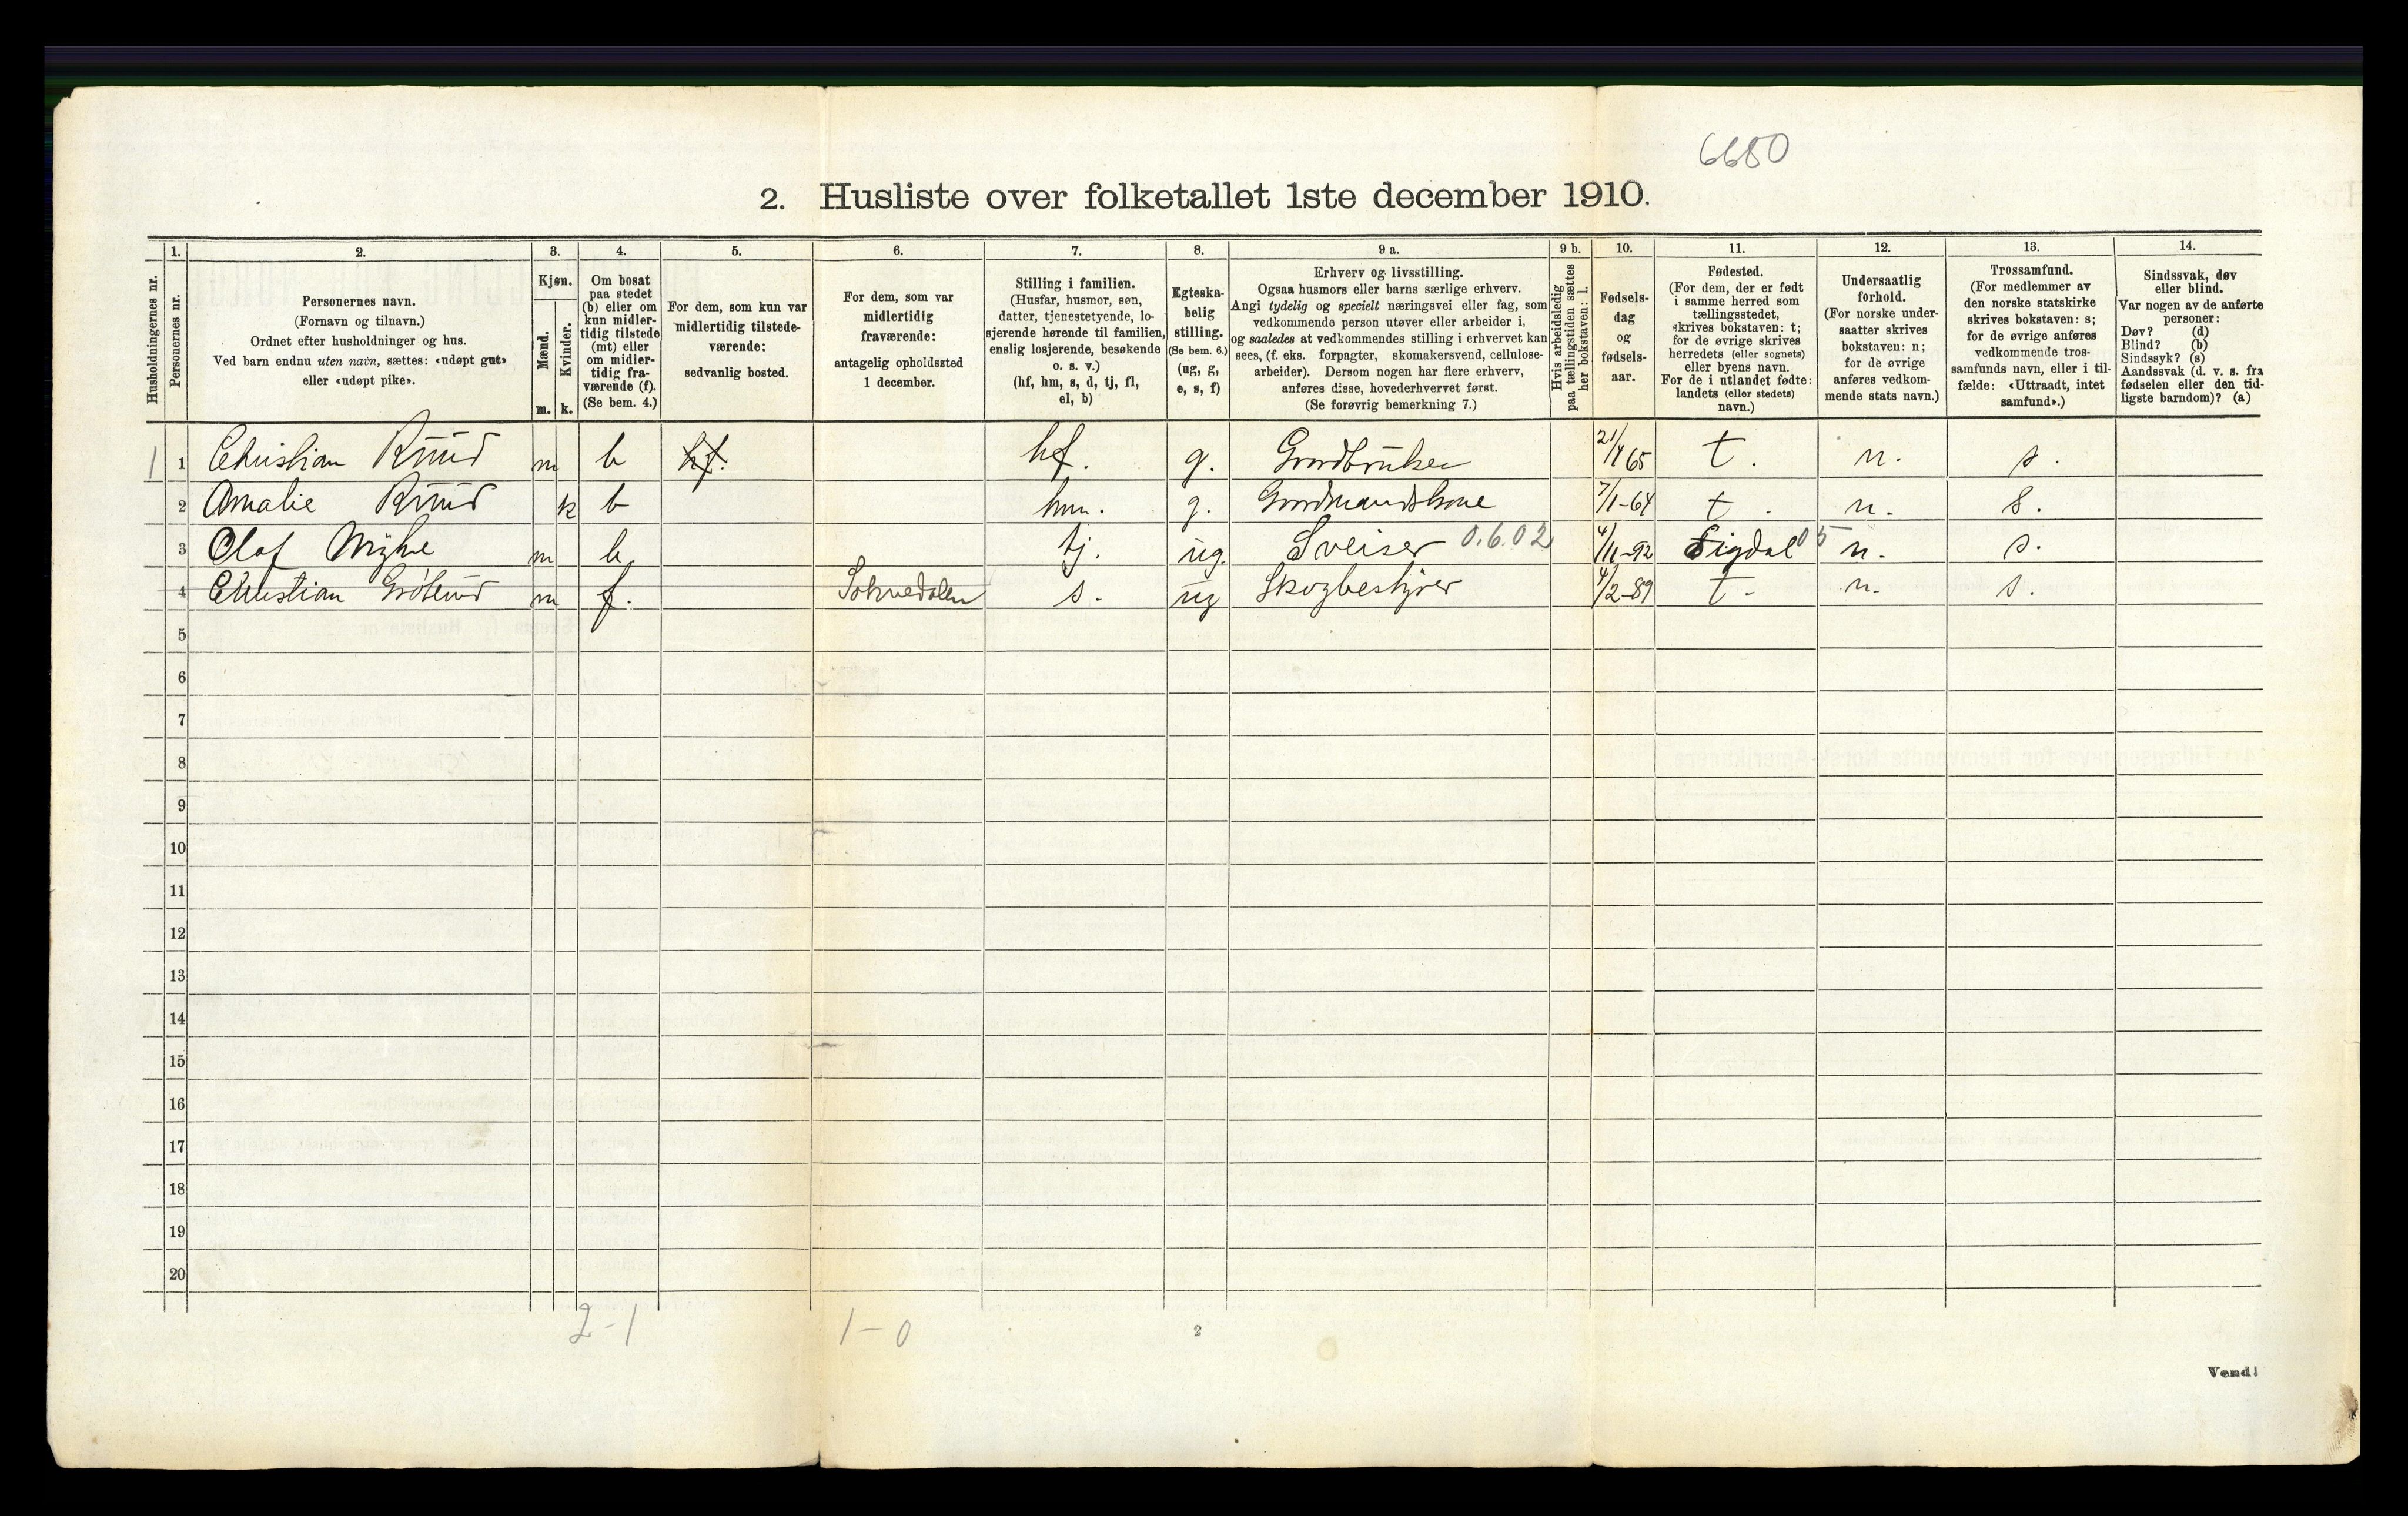 6680
2. Husliste over folketallet 1ste december 1910.
Husholdningernes nr.
1.
Personernes nr.
2.
Personernes navn.
(Fornavn og tilnavn.)
Ordnet efter husholdninger og hus.
Ved barn endnu uten navn, sættes: «udøpt gut»
eller «udøpt pike».
3.
Kjøn.
Mænd.
Kvinder.
m. k.
4.
Om bosat
paa stedet
(b) eller om
kun midler-
tidig tilstede
(mt) eller
om midler-
tidig fra-
værende (f).
(Se bem. 4.)
5.
For dem, som kun var
midlertidig tilstede-
værende:
sedvanlig bosted.
6.
For dem, som var
midlertidig
fraværende:
antagelig opholdssted
1 december.
7.
Stilling i familien.
(Husfar, husmor, søn,
datter, tjenestetyende, lo-
sjerende hørende til familien,
enslig losjerende, besøkende
o. s. v.)
(hf, hm, s, d, tj, fl,
el, b)
8.
Egteska-
belig
stilling.
(Se bem. 6.)
(ug, g,
e, s, f)
9 a.
Erhverv og livsstilling.
Ogsaa husmors eller barns særlige erhverv.
Angi tydelig og specielt næringsvei eller fag, som
vedkommende person utøver eller arbeider i,
og saaledes at vedkommendes stilling i erhvervet kan
sees, (f. eks. forpagter, skomakersvend, cellulose-
arbeider). Dersom nogen har flere erhverv,
anføres disse, hovederhvervet først.
(Se forøvrig bemerkning 7.)
9 b.
Hvis arbeidsledig
paa tællingstiden sættes
her bokstaven: l.
10.
Fødsels-
dag
og
fødsels-
aar.
11.
Fødested.
(For dem, der er født
i samme herred som
tællingsstedet,
skrives bokstaven: t;
for de øvrige skrives
herredets (eller sognets)
eller byens navn.
For de i utlandet fødte:
landets (eller stedets)
navn.)
12.
Undersaatlig
forhold.
(For norske under-
saatter skrives
bokstaven: n;
for de øvrige
anføres vedkom-
mende stats navn.)
13.
Trossamfund.
(For medlemmer av
den norske statskirke
skrives bokstaven: s;
for de øvrige anføres
vedkommende tros-
samfunds navn, eller i til-
fælde: «Uttraadt, intet
samfund».)
14.
Sindssvak, døv
eller blind.
Var nogen av de anførte
personer:
Døv? (d)
Blind? (b)
Sindssyk? (s)
Aandssvak (d. v. s. fra
fødselen eller den tid-
ligste barndom)? (a)
1 1 Christian Ruud m b hf. hf. g. Gardbruker 21/4 65 t. n. s.
2 Amalie Ruud k b hm. g. Gardmandskone 7/1-64 t. n. s.
3 Olof Myhre m b tj. ug. Sveiser 0.6.02 4/11-92 Sigdal 05 n. s.
4 Christian m f. Soknedalen s. ug Skogbestyrer 4/2-89 t. n. s.
5
6
7
8
9
10
11
12
13
14
15
16
17
18
19
20
2-1 1-0
2
Vend!